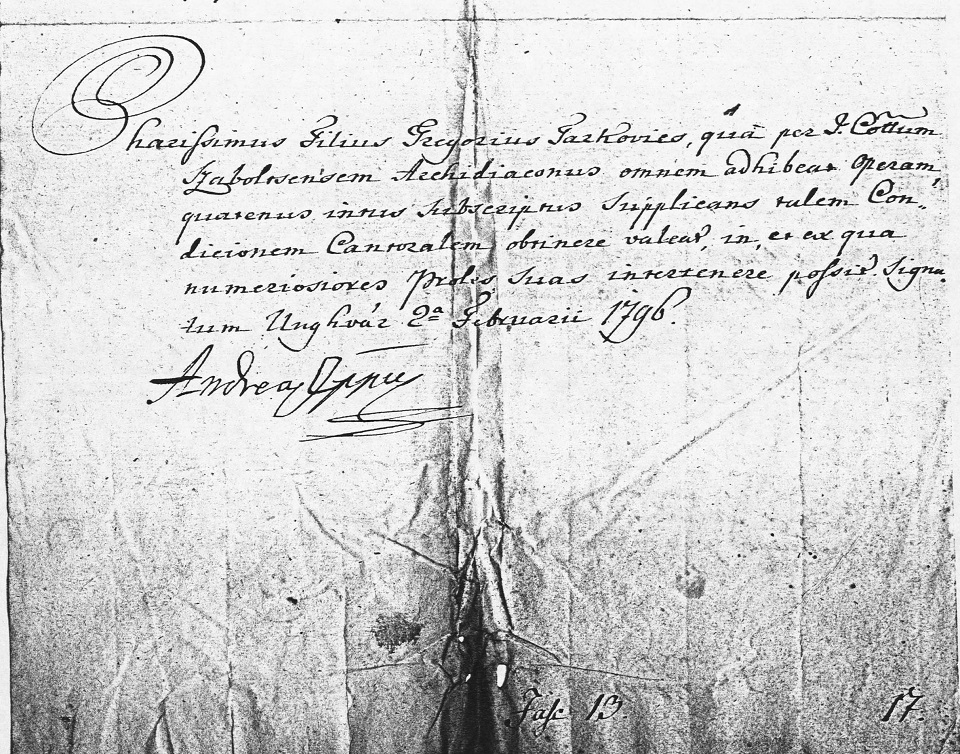 Charissimus Filius Gregorius Tarkovics, quà per J. Cottum
Szaboltsensem Archidiaconus omnem adhibeat operam,
quatenus intus subscriptus Supplicans talem Con-
dicionem Cantoralem obtinere valeat, in, et ex qua
numeriosiores Proles suas intertenere possit. Signa-
tum Unghvár 2ª Februarii 1796.
Andreas Eppus
Fasc 13.
17.